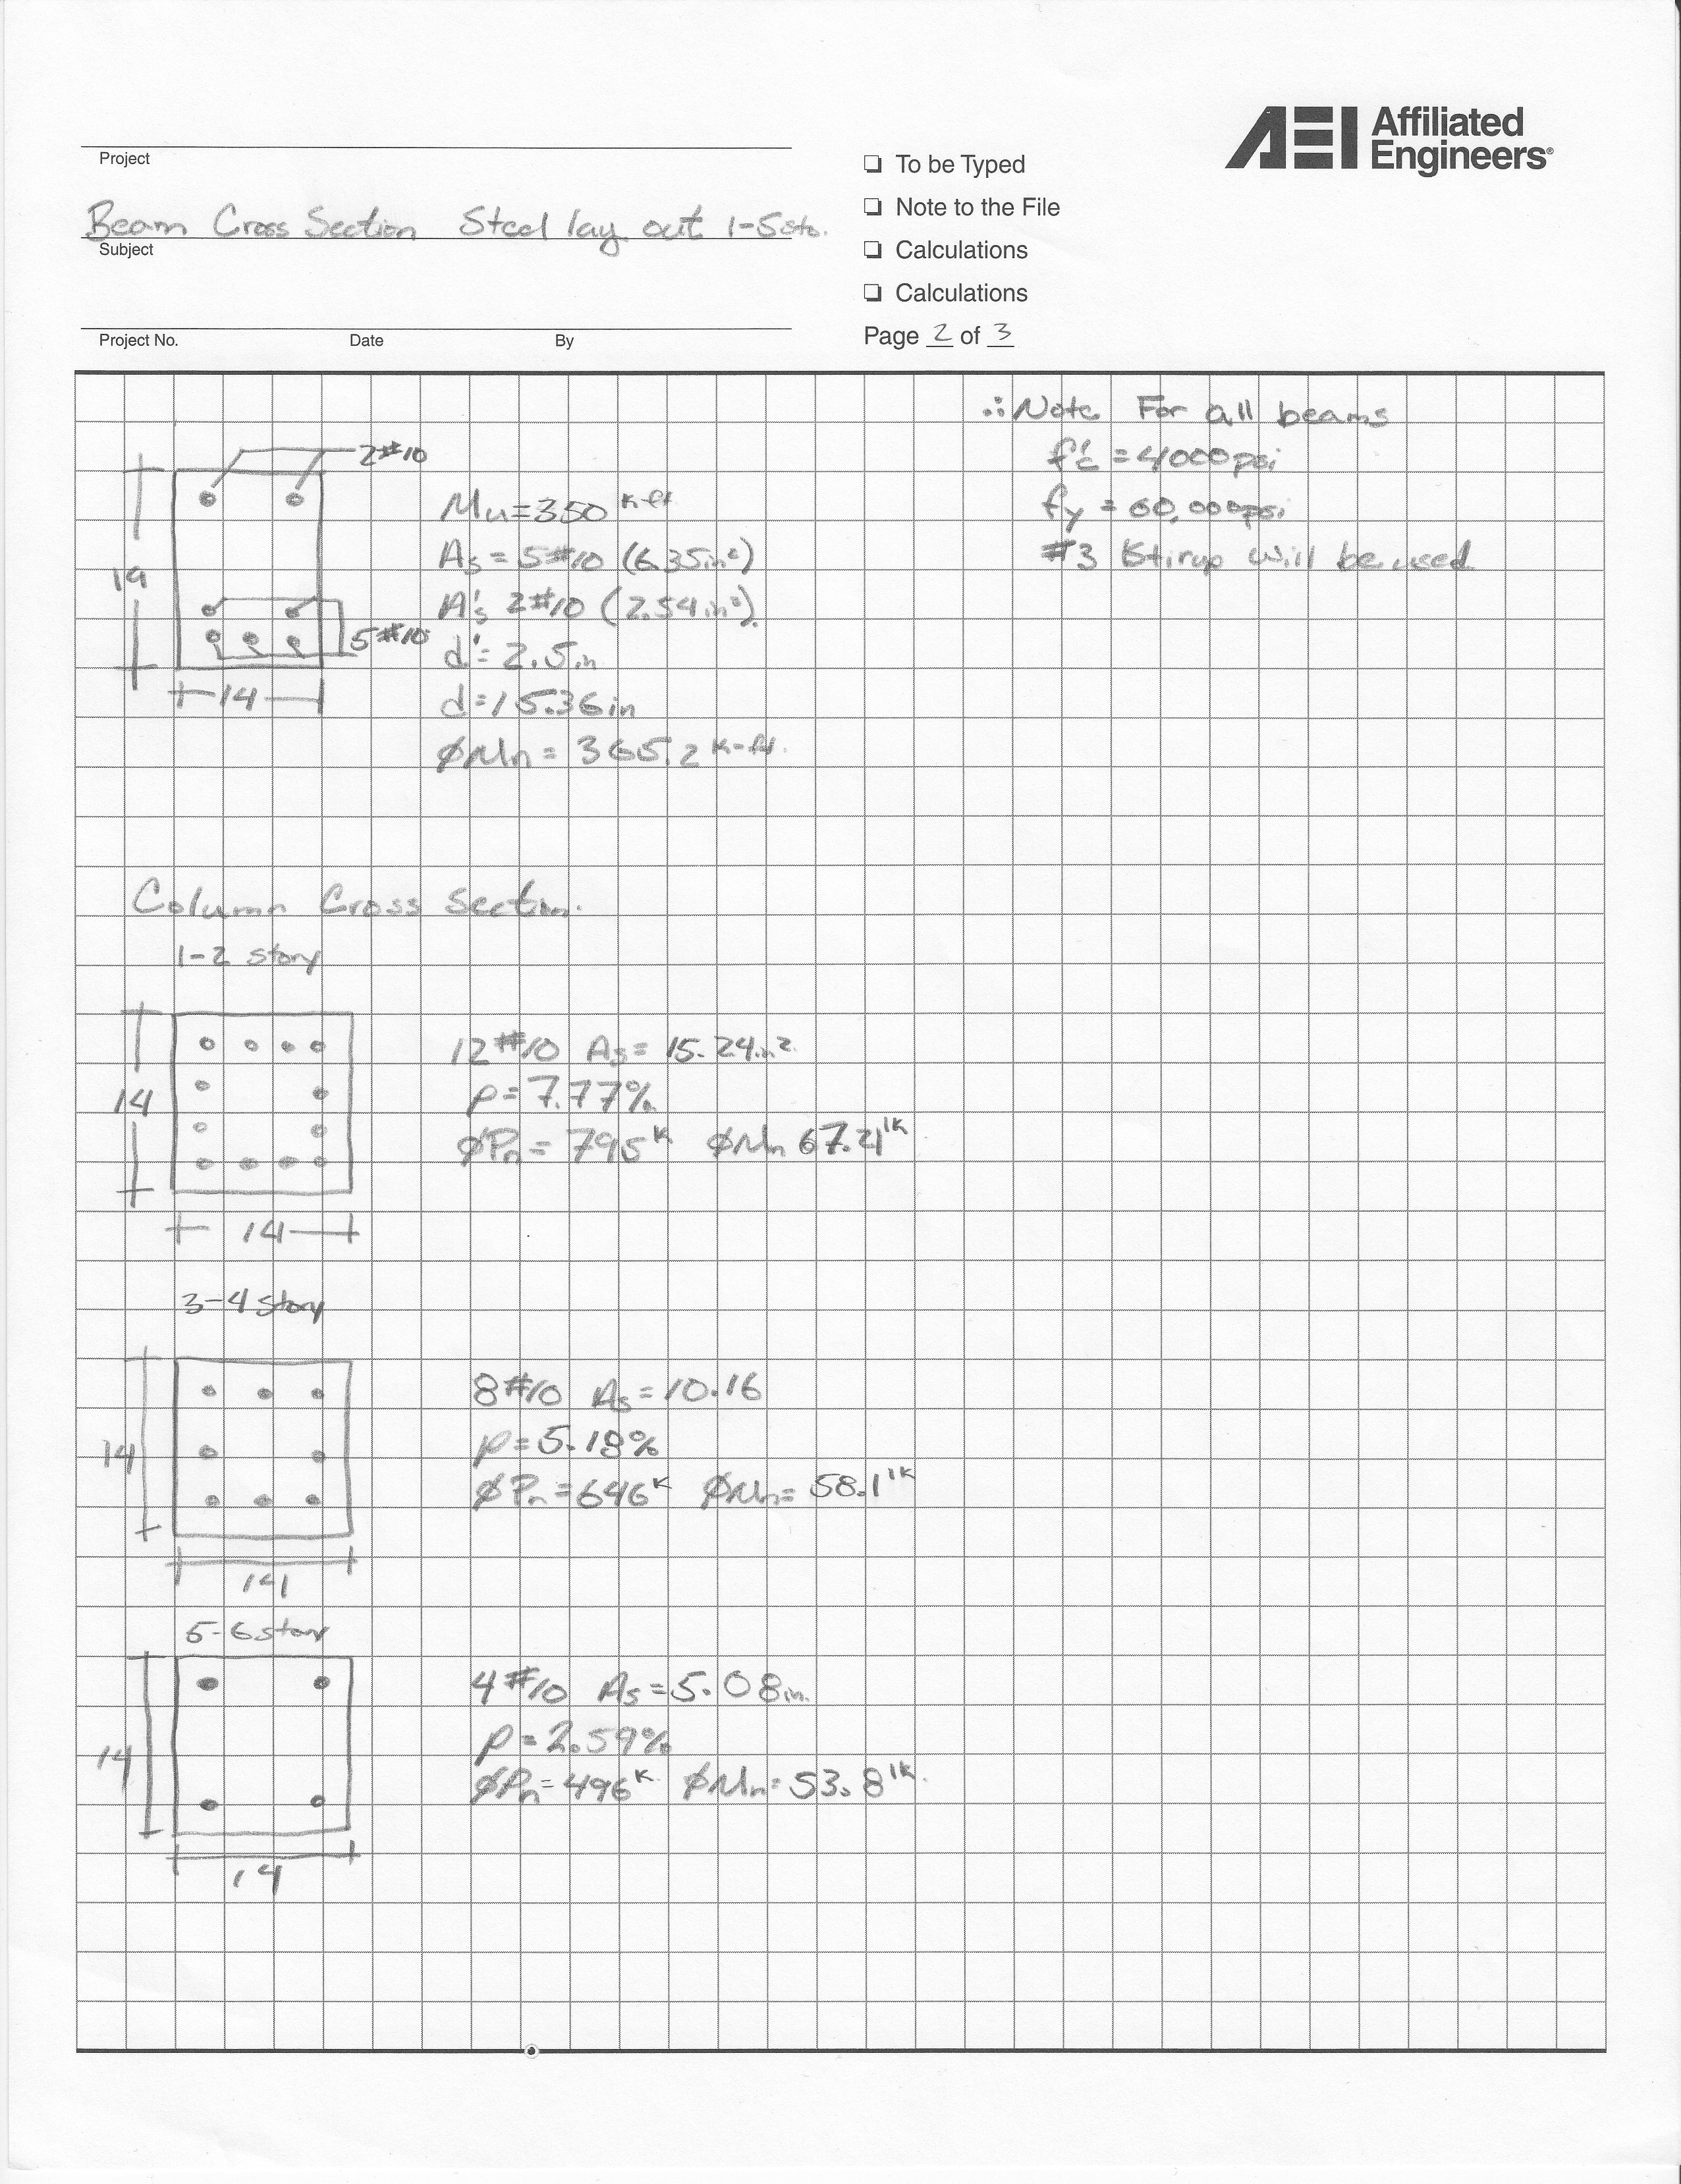 AEI Affiliated Engineers®
Project
Beam Cross Section Steel lay out 1-5
Subject
Project No. Date By
To be Typed
Note to the File
Calculations
Calculations
Page 2 of 3
∴ Note For all beams
f'c = 4000psi
fy = 60,000psi
#3 Stirup will be used
2#10
19
5#10
14
Mu=350 k-ft
As = 5#10 (6.35in²)
A's 2#10 (2.54in²)
d'= 2.5in
d=15.36in
ØMn = 365.2 k-ft.
Column Cross Section.
1-2 story
14
14
12#10 As= 15.24in²
ρ=7.77%
ØPn= 795k ØMn 67.21'k
3-4 story
14
14
8#10 As=10.16
ρ=5.18%
ØPn=646k ØMn= 58.1'k
5-6 story
14
14
4#10 As=5.08in.
ρ=2.59%
ØPn=496k ØMn= 53.8'k.